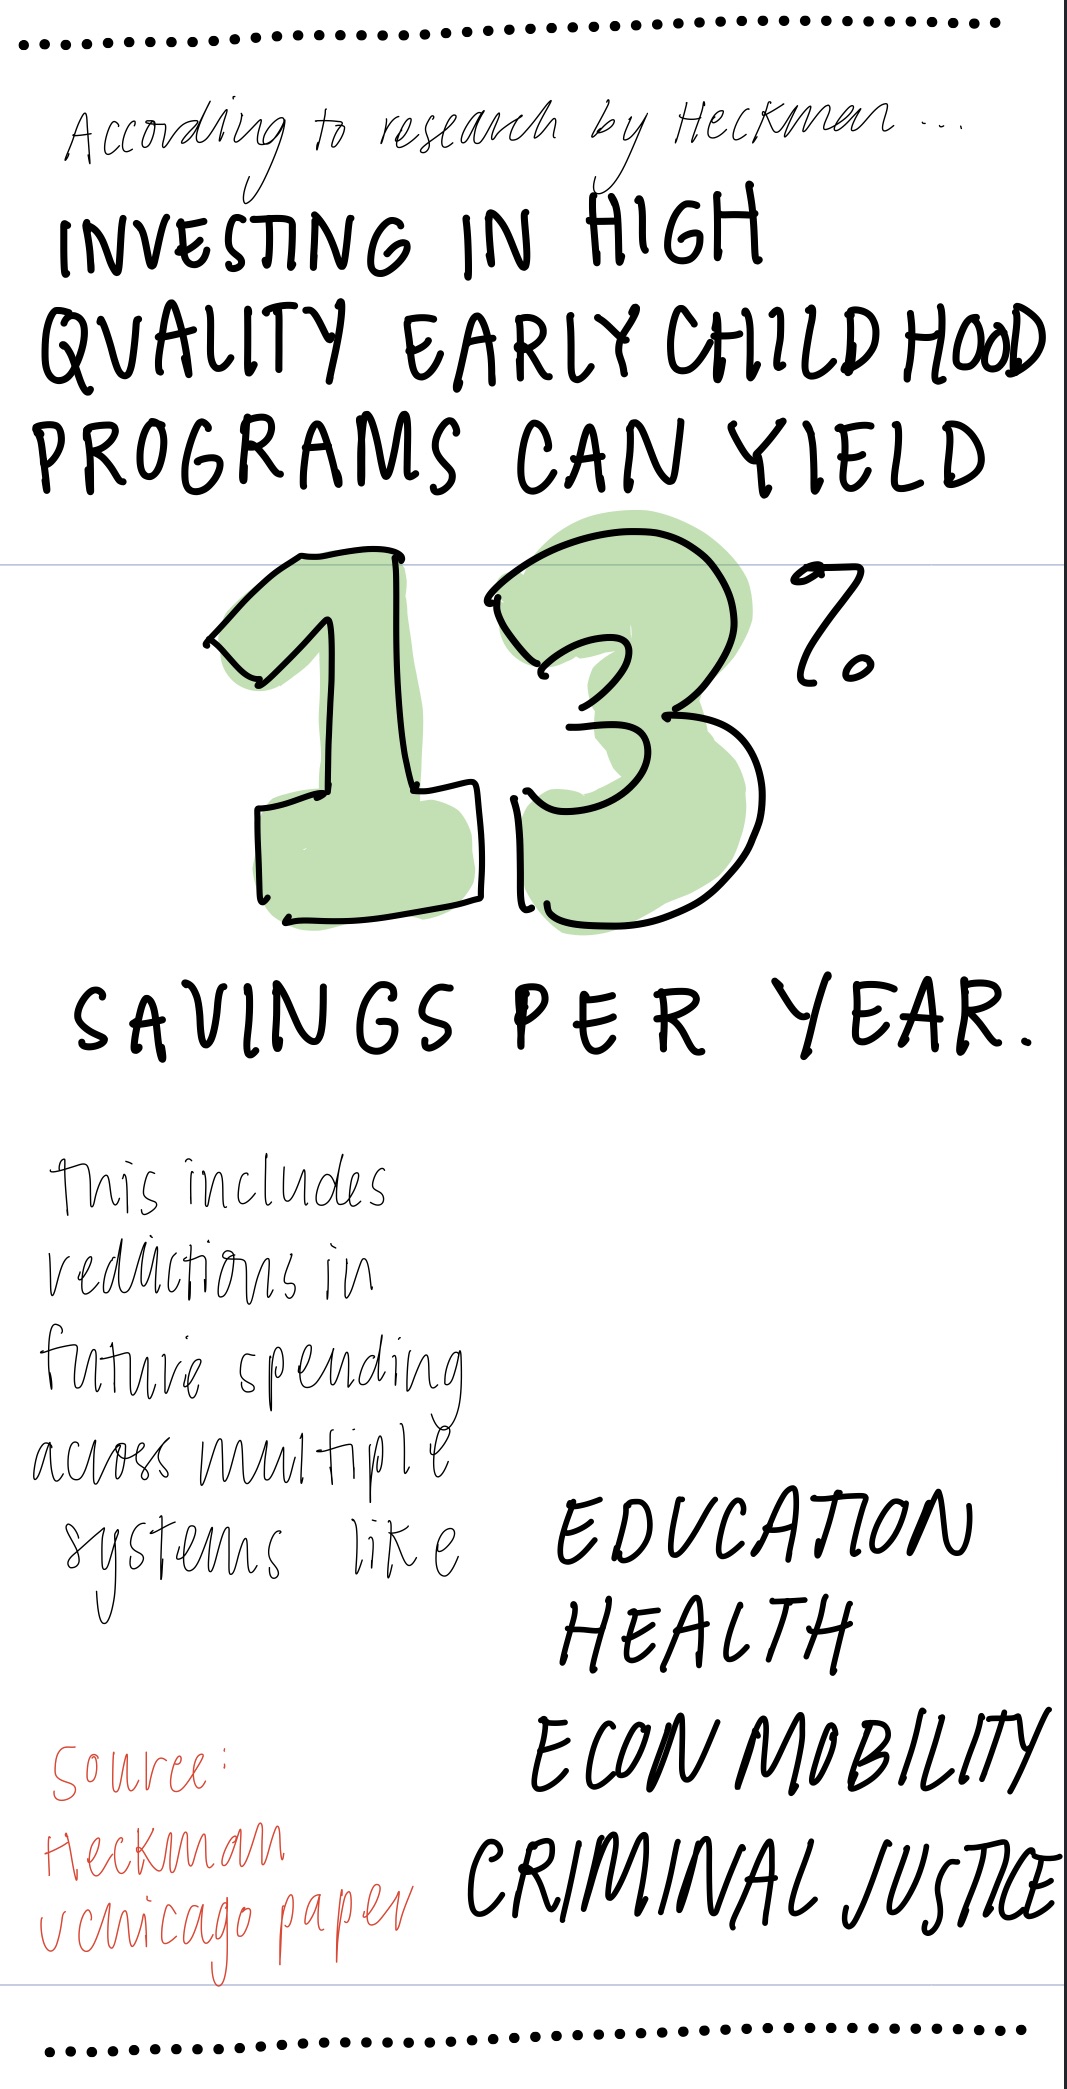 According to research by Heckman ...
INVESTING IN HIGH
QUALITY EARLY CHILDHOOD
PROGRAMS CAN YIELD
13%
SAVINGS PER YEAR.
This includes
reductions in
future spending
across multiple
systems like
EDUCATION
HEALTH
ECON MOBILITY
CRIMINAL JUSTICE
Source:
Heckman
uchicago paper